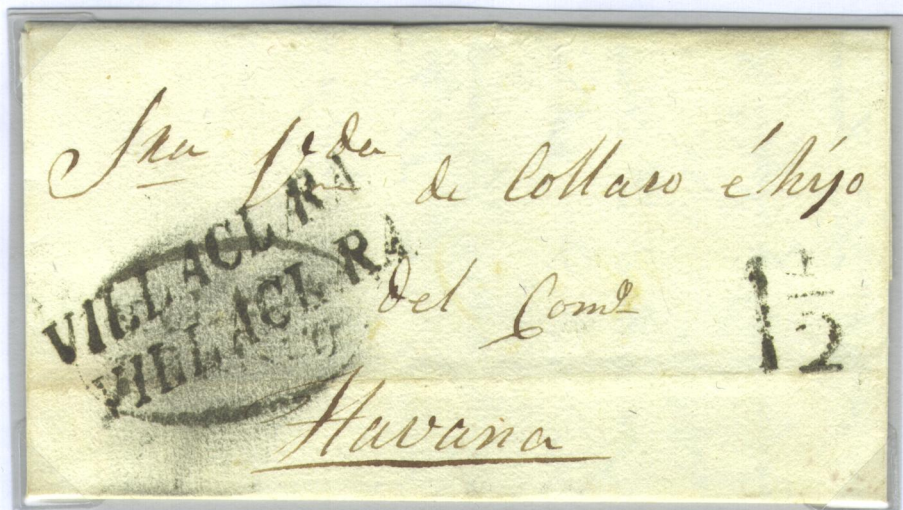 Sra V.da de Collaso é hijo
VILLACLARA
VILLACLARA
del Com.o
1 1/2
Havana